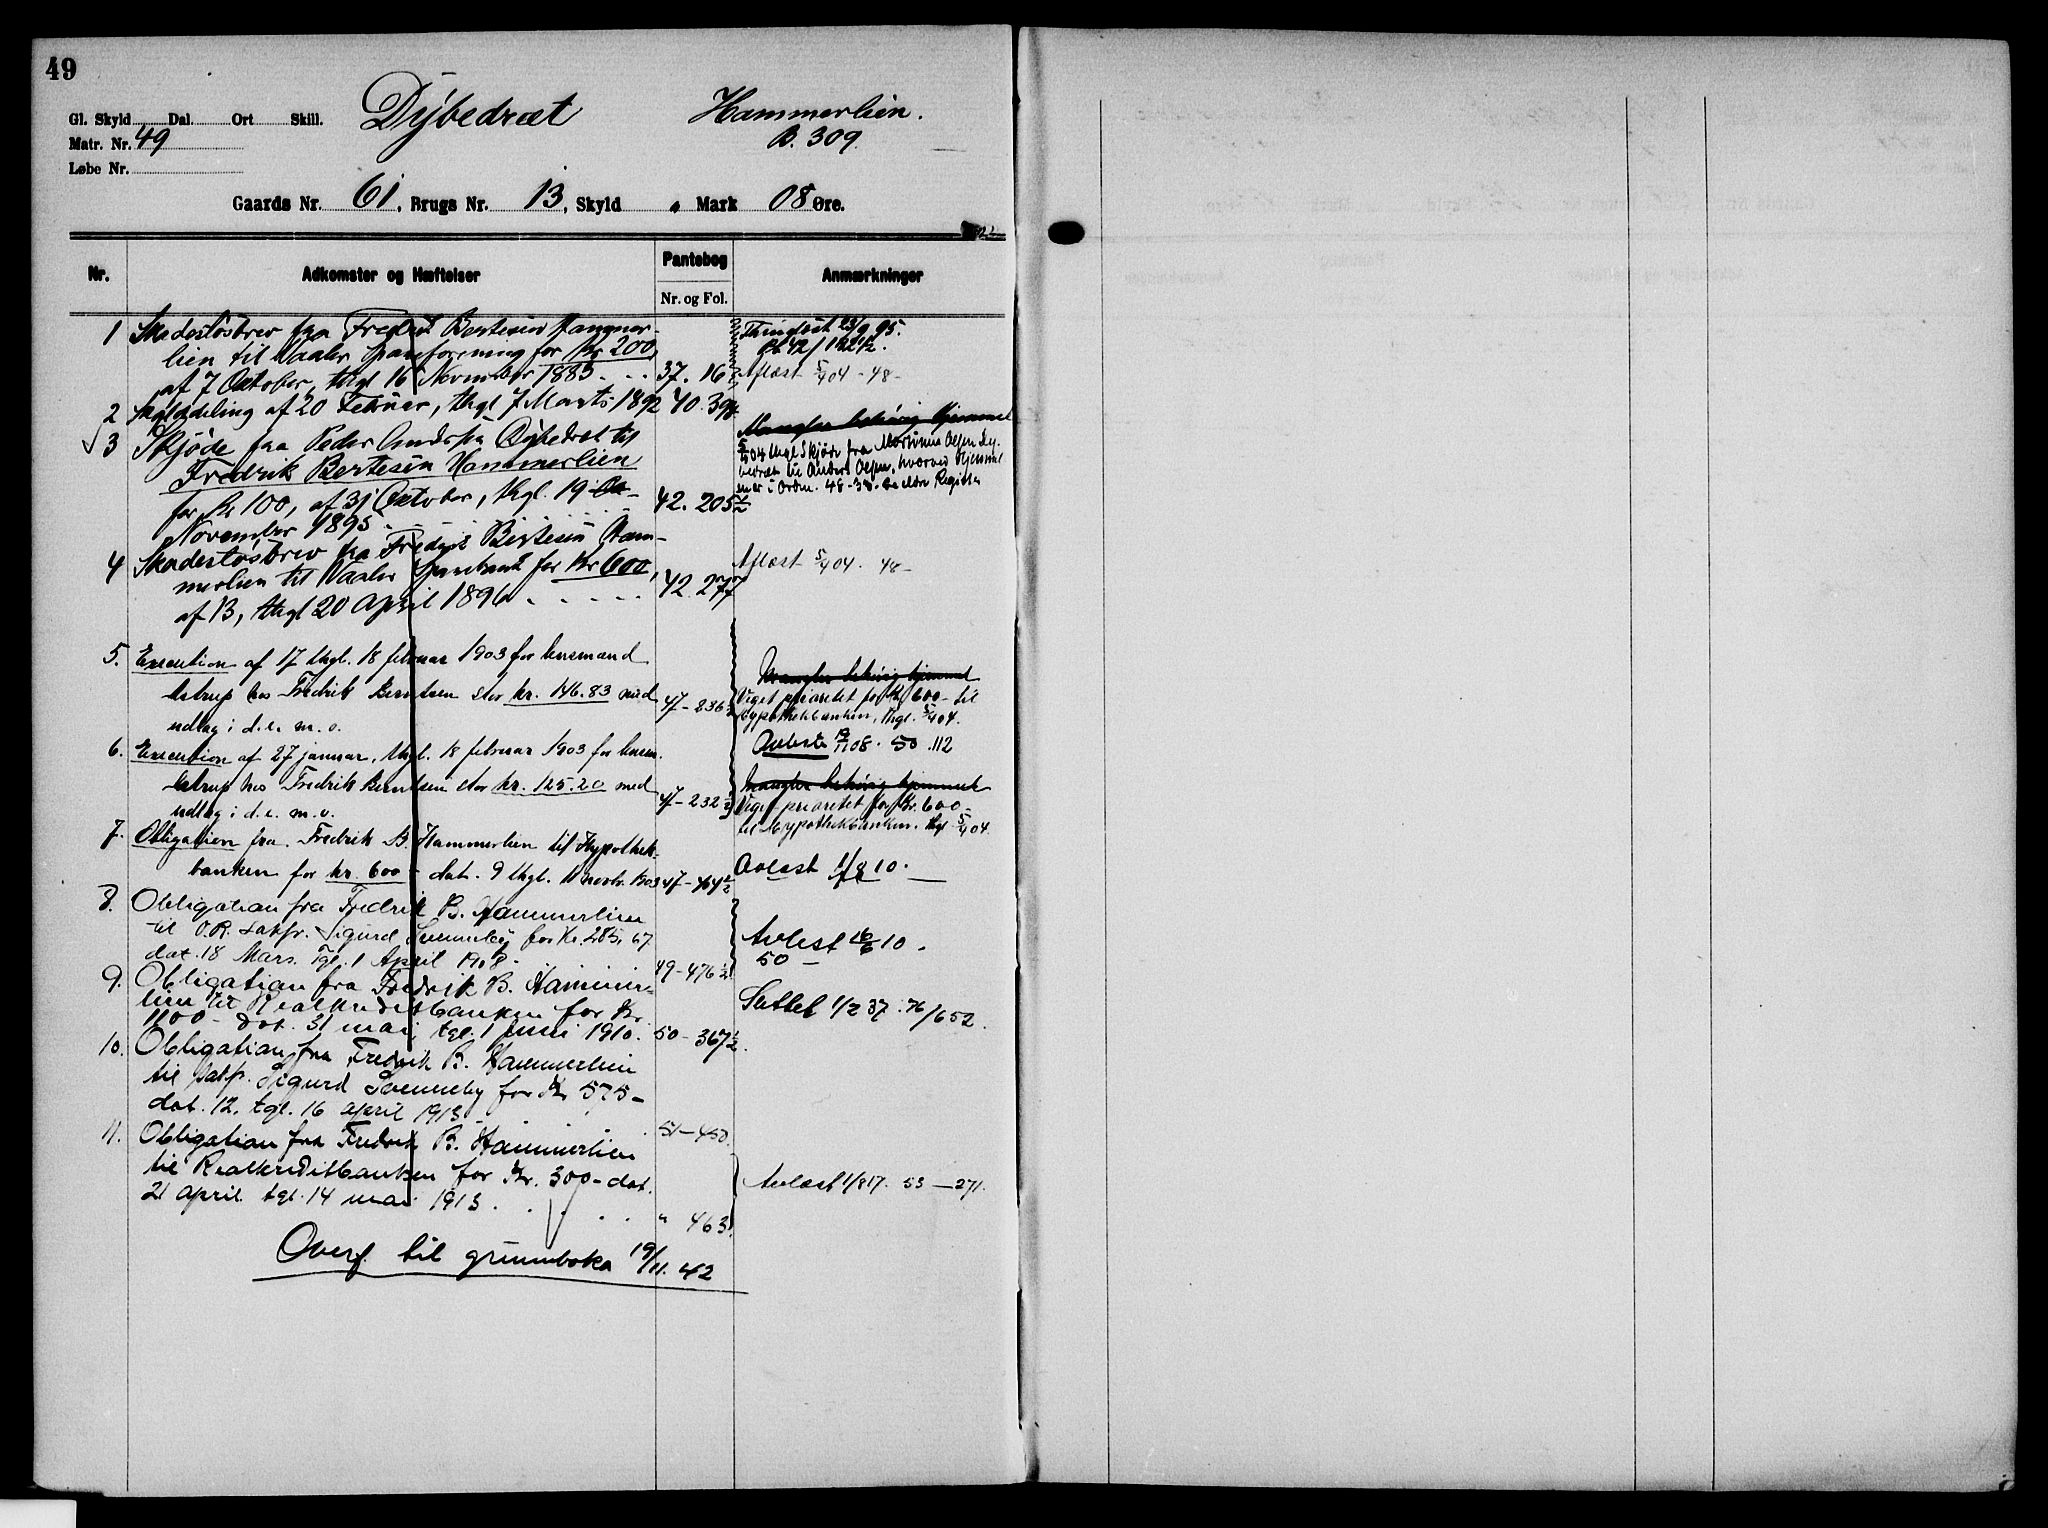 49
Gl. Skyld Dal. Ort Skill. Dybedræt Hammerlien.
Matr. Nr. 49 B. 309.
Løbe Nr.
Gaards Nr. 61, Brugs Nr. 13, Skyld Mark 08 Øre.
Nr. Adkomster og Hæftelser Pantebog Anmærkninger
Nr. og Fol.
1 Skadesløsbrev fra Fredrik Bertesen Hammer-
lien til Vaaler Spareforening for Kr 200,
af 7 Oktober, thgl 16 November 1885 37. 16
23/9 95.
Pb 42/122½.
Aflæst 5/4 04 - 48 -
2 Skylddeling af 20 Februar, thgl 7 Marts 1892 40. 398.
3 Skjøde fra Peder Dybedræt til
Fredrik Bertesen Hammerlien
for Kr 100, af 31 Oktober, thgl. 19
November 1895. 42. 205½
Mangler behørig Hjemmel
5/4 04 thgl Skjøde fra Martinus Olsen Dy-
bedræt til Anders Olsen, hvorved Hjemmel
en er i Orden. 48-38. Se eldre Register
4 Skadesløsbrev fra Fredrik Bertesen Ham-
merlien til Vaaler Sparebank for Kr 600,
af 13, thgl 20 April 1896 42. 277
Aflæst 5/4 04. 48 -
5. Execution af 17 thgl. 18 februar 1903 for lensmand
Astrup hos Fredrik Berntsen stor kr. 146.83 med
udlæg i d. e. m. v. 47 - 236½
Mangler behørig hjemmel
Veget prioritet for Kr 600 - til
Hypothekbanken, thgl. 5/4 04.
Avlæst 08. 50. 112
6. Execution af 27 januar, thgl. 18 februar 1903 for lensm.
Astrup hos Fredrik Berntsen stor kr. 125.20 med
udlæg i d. e. m. v. 47 - 232½
Mangler behørig hjemmel
Veget prioritet for Kr. 600 -
til Hypothekbanken. thgl 5/4 04.
7. Obligation fra Fredrik B. Hammerlien til Hypothek-
banken for kr. 600 - dat. 9 thgl. 11 novbr. 1903 47 - 464½
Avlæst 1/8 10.
8. Obligation fra Fredrik B. Hammerlien
til O.R. sakfr. Sigurd Svenneby for Kr. 285,67
dat. 18 Mars. Tgl. 1 April 1908. 49 - 476½
Avlest 16/6 10.
50 -
9. Obligation fra Fredrik B. Hammer-
lien til Realkreditbanken for Kr.
1100 - Dat. 31 mai tgl. 1 juni 1910. 50 - 367½.
Slettet 1/2 37. 76/652.
10. Obligation fra Fredrik B. Hammerlien
til sakf. Sigurd Svenneby for Kr 575 -
dat. 12. tgl. 16 april 1913 51 - 450.
11. Obligation fra Fredrik B. Hammerlien
til Realkreditbanken for Kr. 300 - dat.
21 april tgl. 14 mai 1913. " 463.
Avlæst 1/8 17. 53 - 271.
Overf. til grunnboka 19/11. 42